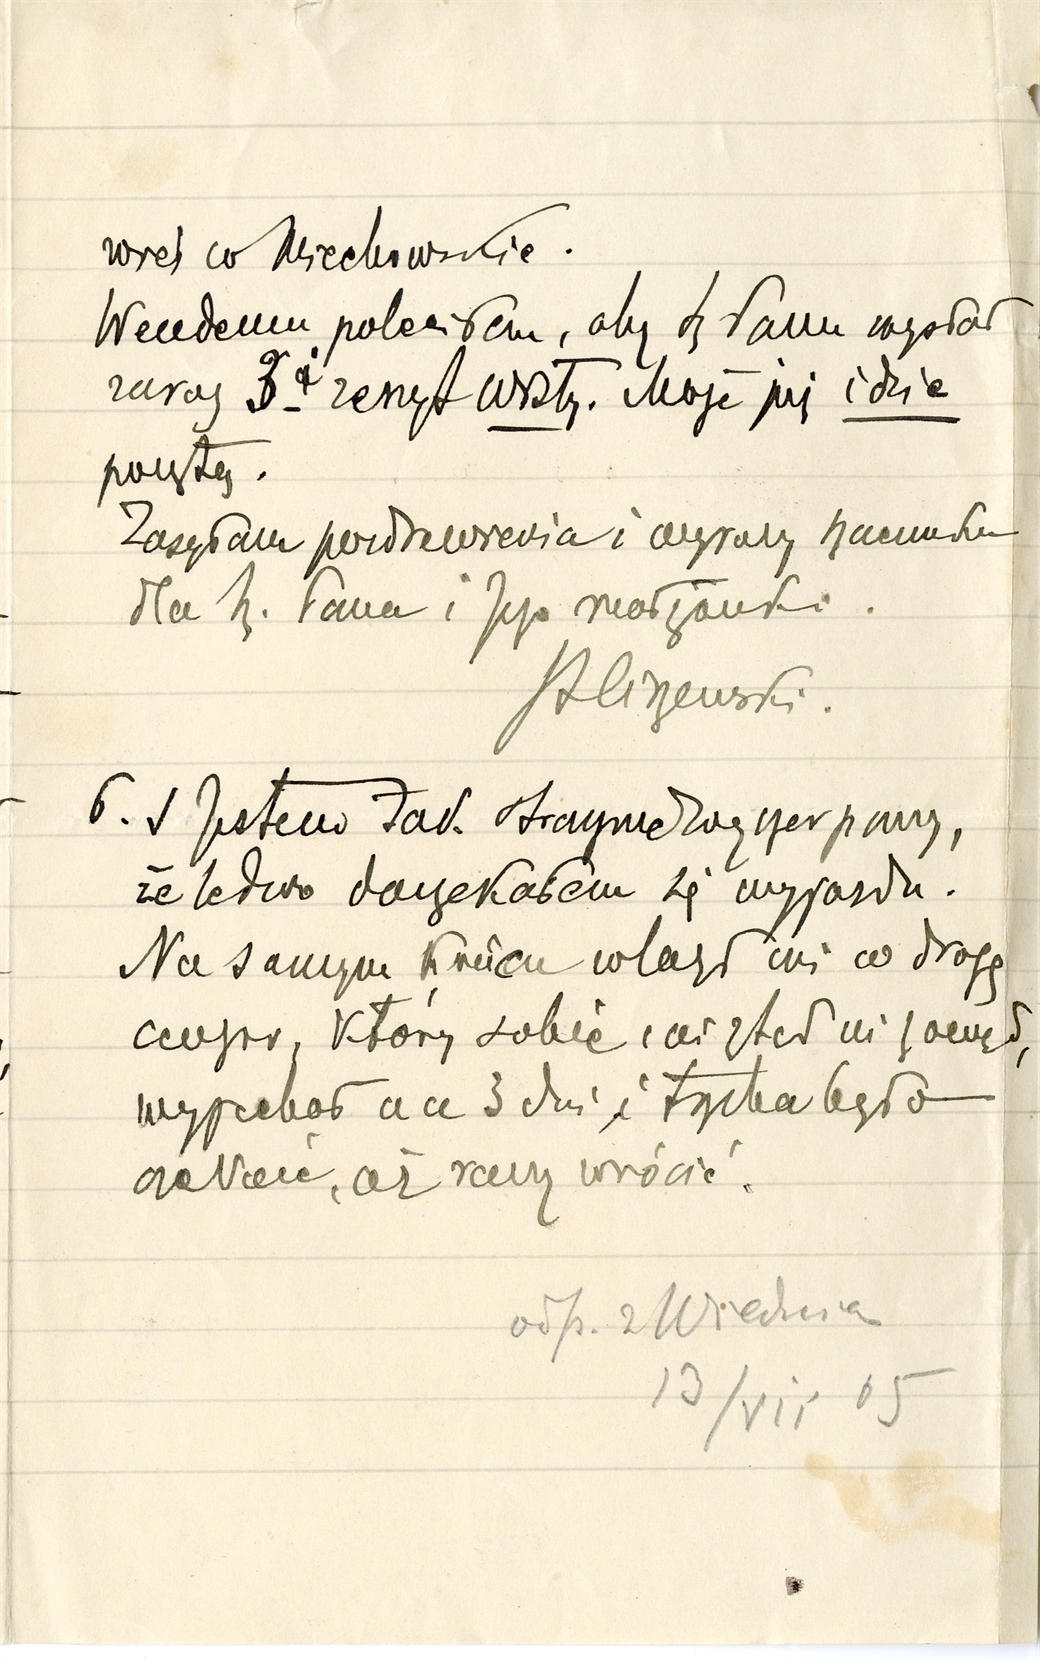 wieś w Miechowskie.
Wendemu poleciłem, aby Sz Panu wysłał
zaraz 3-i zeszyt Wisły. Może już idzie
pocztą.
Zasyłam pozdrowienia i wyrazy szacunku
dla Sz. Pana i Jego małżonki.
Lisiewski.
P. S Jestem tak strasznie wyczerpany,
że ledwo doczekałem się wyjazdu.
Na samym końcu wlazł mi w drogę
cenzor, który sobie ni ztąd ni zowąd,
wyjechał na 3 dni i trzeba było
czekać, aż raczy wrócić.
odp. z Wiednia
13/VII 05